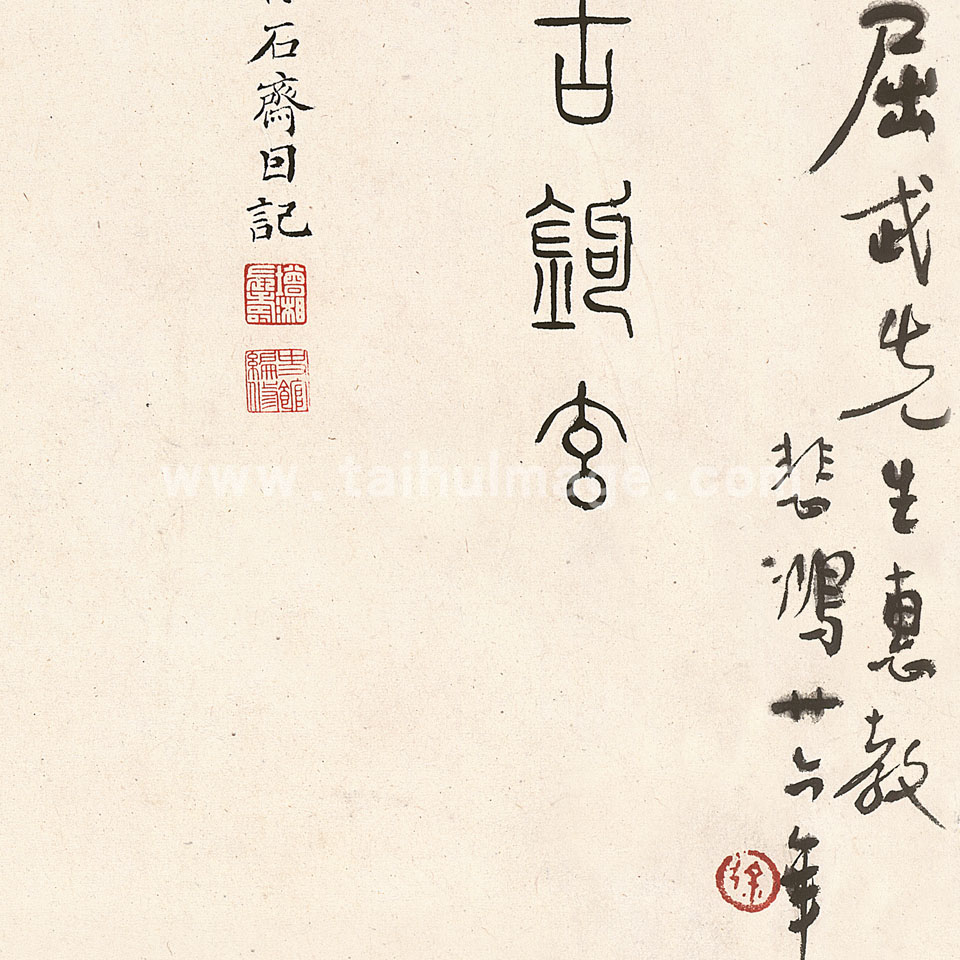 屈武先生惠教
悲鴻廿六年
徐
古鉤玄
石齋日記
www.taihuimage.com